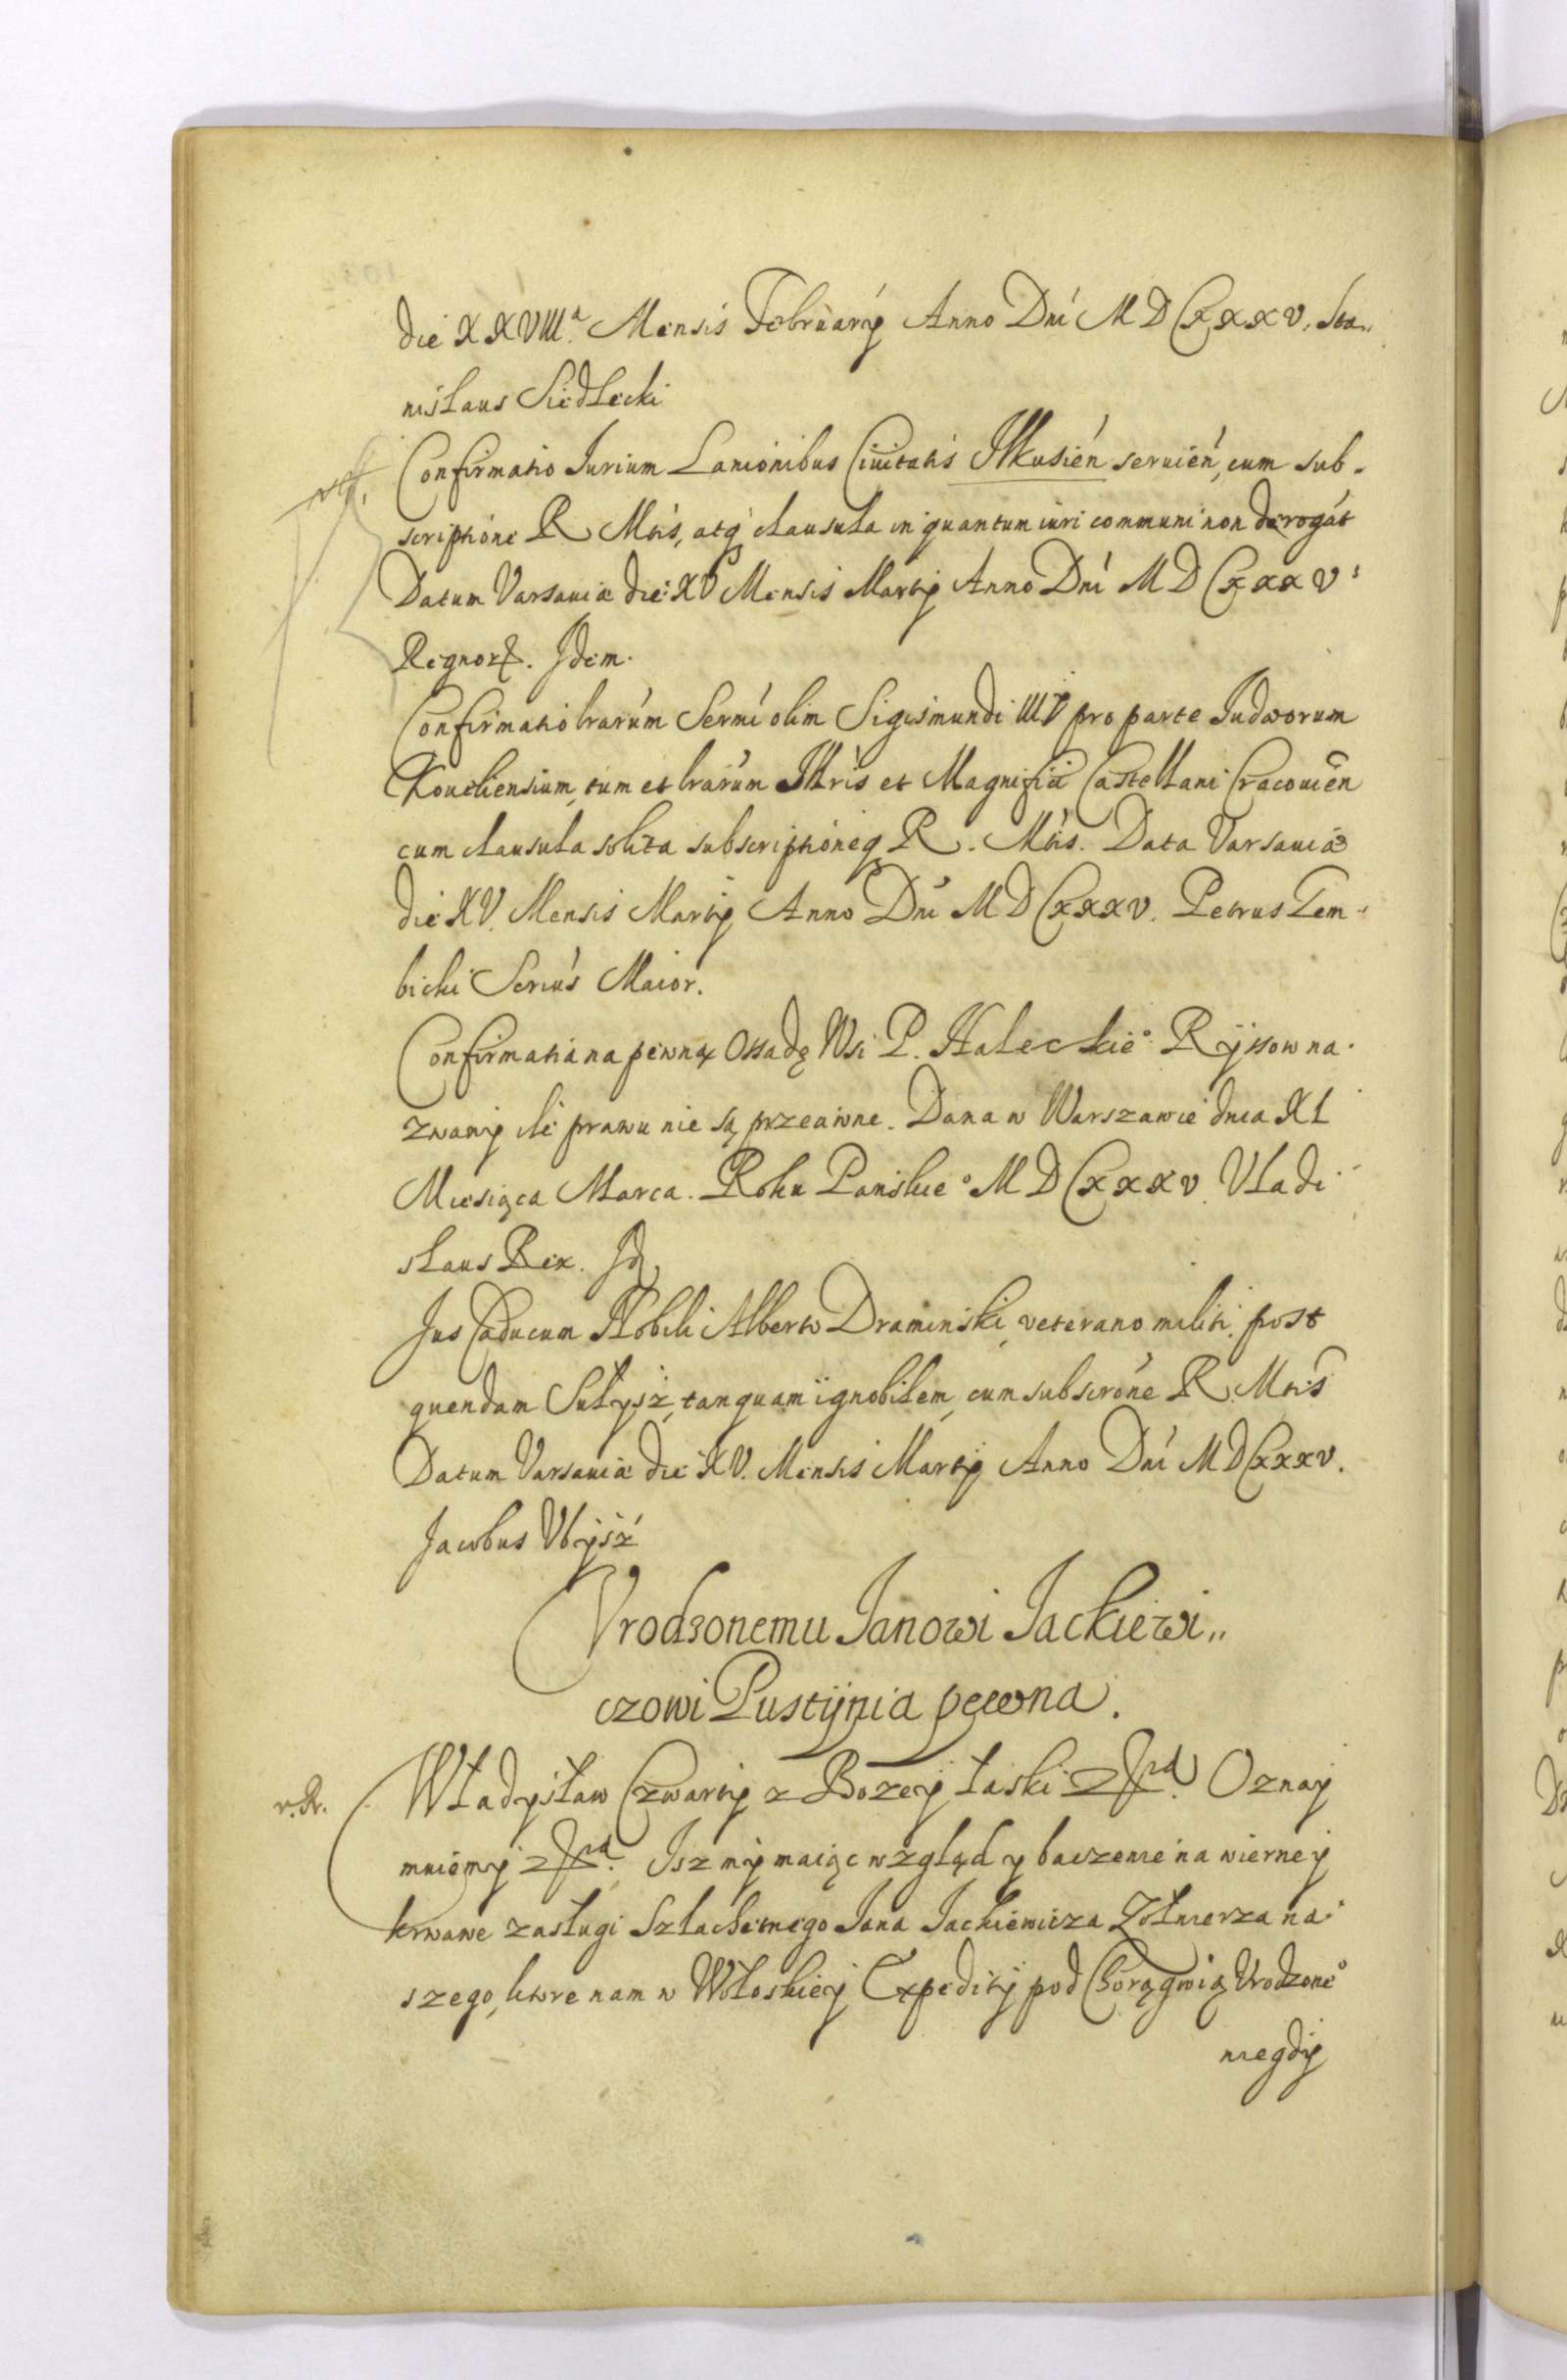 die XXVIIIª Mensis Februarÿ Anno Dni MDCXXXV. Sta„
nisłaus Siedlecki
Confirmatio Iurium Lanionibus Ciuitatis Ilkusień seruień, cum sub-
scriptione R Mtis, atq clausula in quantum iuri communi non derogat
Datum Varsauiæ die XV Mensis Martÿ Anno Dni MDCXXXV
Regnor. Idem.
Confirmatio lrarum Sermi olim Sigismundi IIIV pro parte Iudæorum
cum clausula solita subscriptioneq R. Mtis. Data Varsauiæ
die XV. Mensis Martÿ Anno Dni MDCXXXV. Petrus Gem-
bicki Secrius Maior.
Confirmatia na pewną Ossadę Wsi P. Haleckie° Ryssow na-
zwany ile prawu nie są przeciwne. Dana w Warszawie dnia XI
Miesiąca Marca. Roku Pańskie° MDCXXXV. Vładi
słaus Rex. Id
Jus Caducum Nobili Alberto Draminski, veterano militi, post
quendam Sułysz, tanquam ignobilem, cum subscrone R Mtis
Datum Varsauiæ die XV. Mensis Martÿ Anno Dni MDCXXXV.
Jacobus Vbysz
Vrodzonemu Janowi Jackiewi„
czowi Pustÿnia pewna.
v. R. Władysław Czwarty z Bozey łaski Oznay
mniemy Isz my maiąc wzgląd y baczenie na wierne y
krwawe zasługi Szlachetnego Jana Jackiewicza Zołnierza na
szego, ktore nam w Wołoskiey Expeditÿ pod Chorągwią Vrodzone°
niegdy